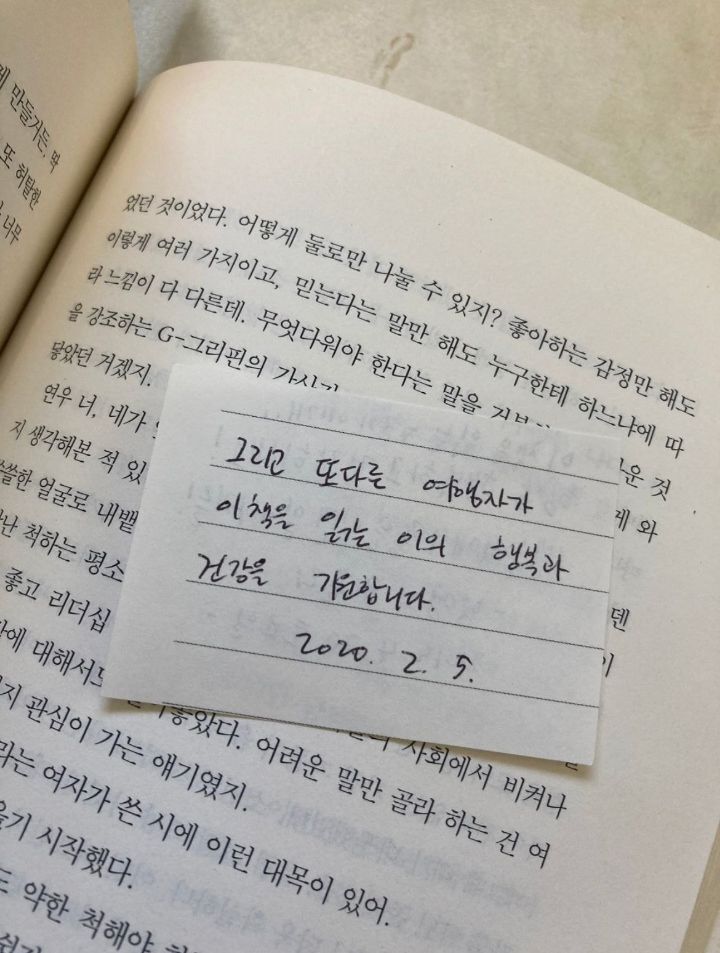 에 만들거든, 딱
또 허탈한
너무
었던 것이었다. 어떻게 둘로만 나눌 수 있지? 좋아하는 감정만 해도
이렇게 여러 가지이고, 믿는다는 말만 해도 누구한테 하느냐에 따
라 느낌이 다 다른데. 무엇다워야 한다는 말을
운 것
을 강조하는 G-그리핀의
에 와
닿았던 거겠지.
연우 너, 네가
덴
지 생각해본 적 있
이
쓸쓸한 얼굴로 내뱉
난 척하는 평소
좋고 리더십
에 대해서도
좋았다.
사회에서 비켜나
지 관심이 가는 얘기였지.
어려운 말만 골라 하는 건 여
라는 여자가 쓴 시에 이런 대목이 있어.
시작했다.
약한 척해야
그리고 또다른 여행자가
이 책을 읽는 이의 행복과
건강을 기원합니다.
2020. 2. 5.